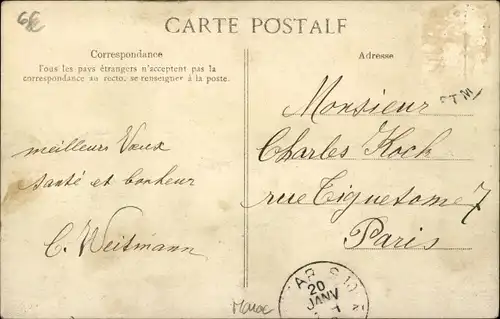 6€
CARTE POSTALE
Correspondance
Tous les pays étrangers n'acceptent pas la
correspondance au recto, se renseigner à la poste.
meilleurs Vœux
santé et bonheur
C. Weitmann
Adresse
Monsieur
Charles Koch
rue Tiquetonne 7
Paris
20
JANV
Maroc